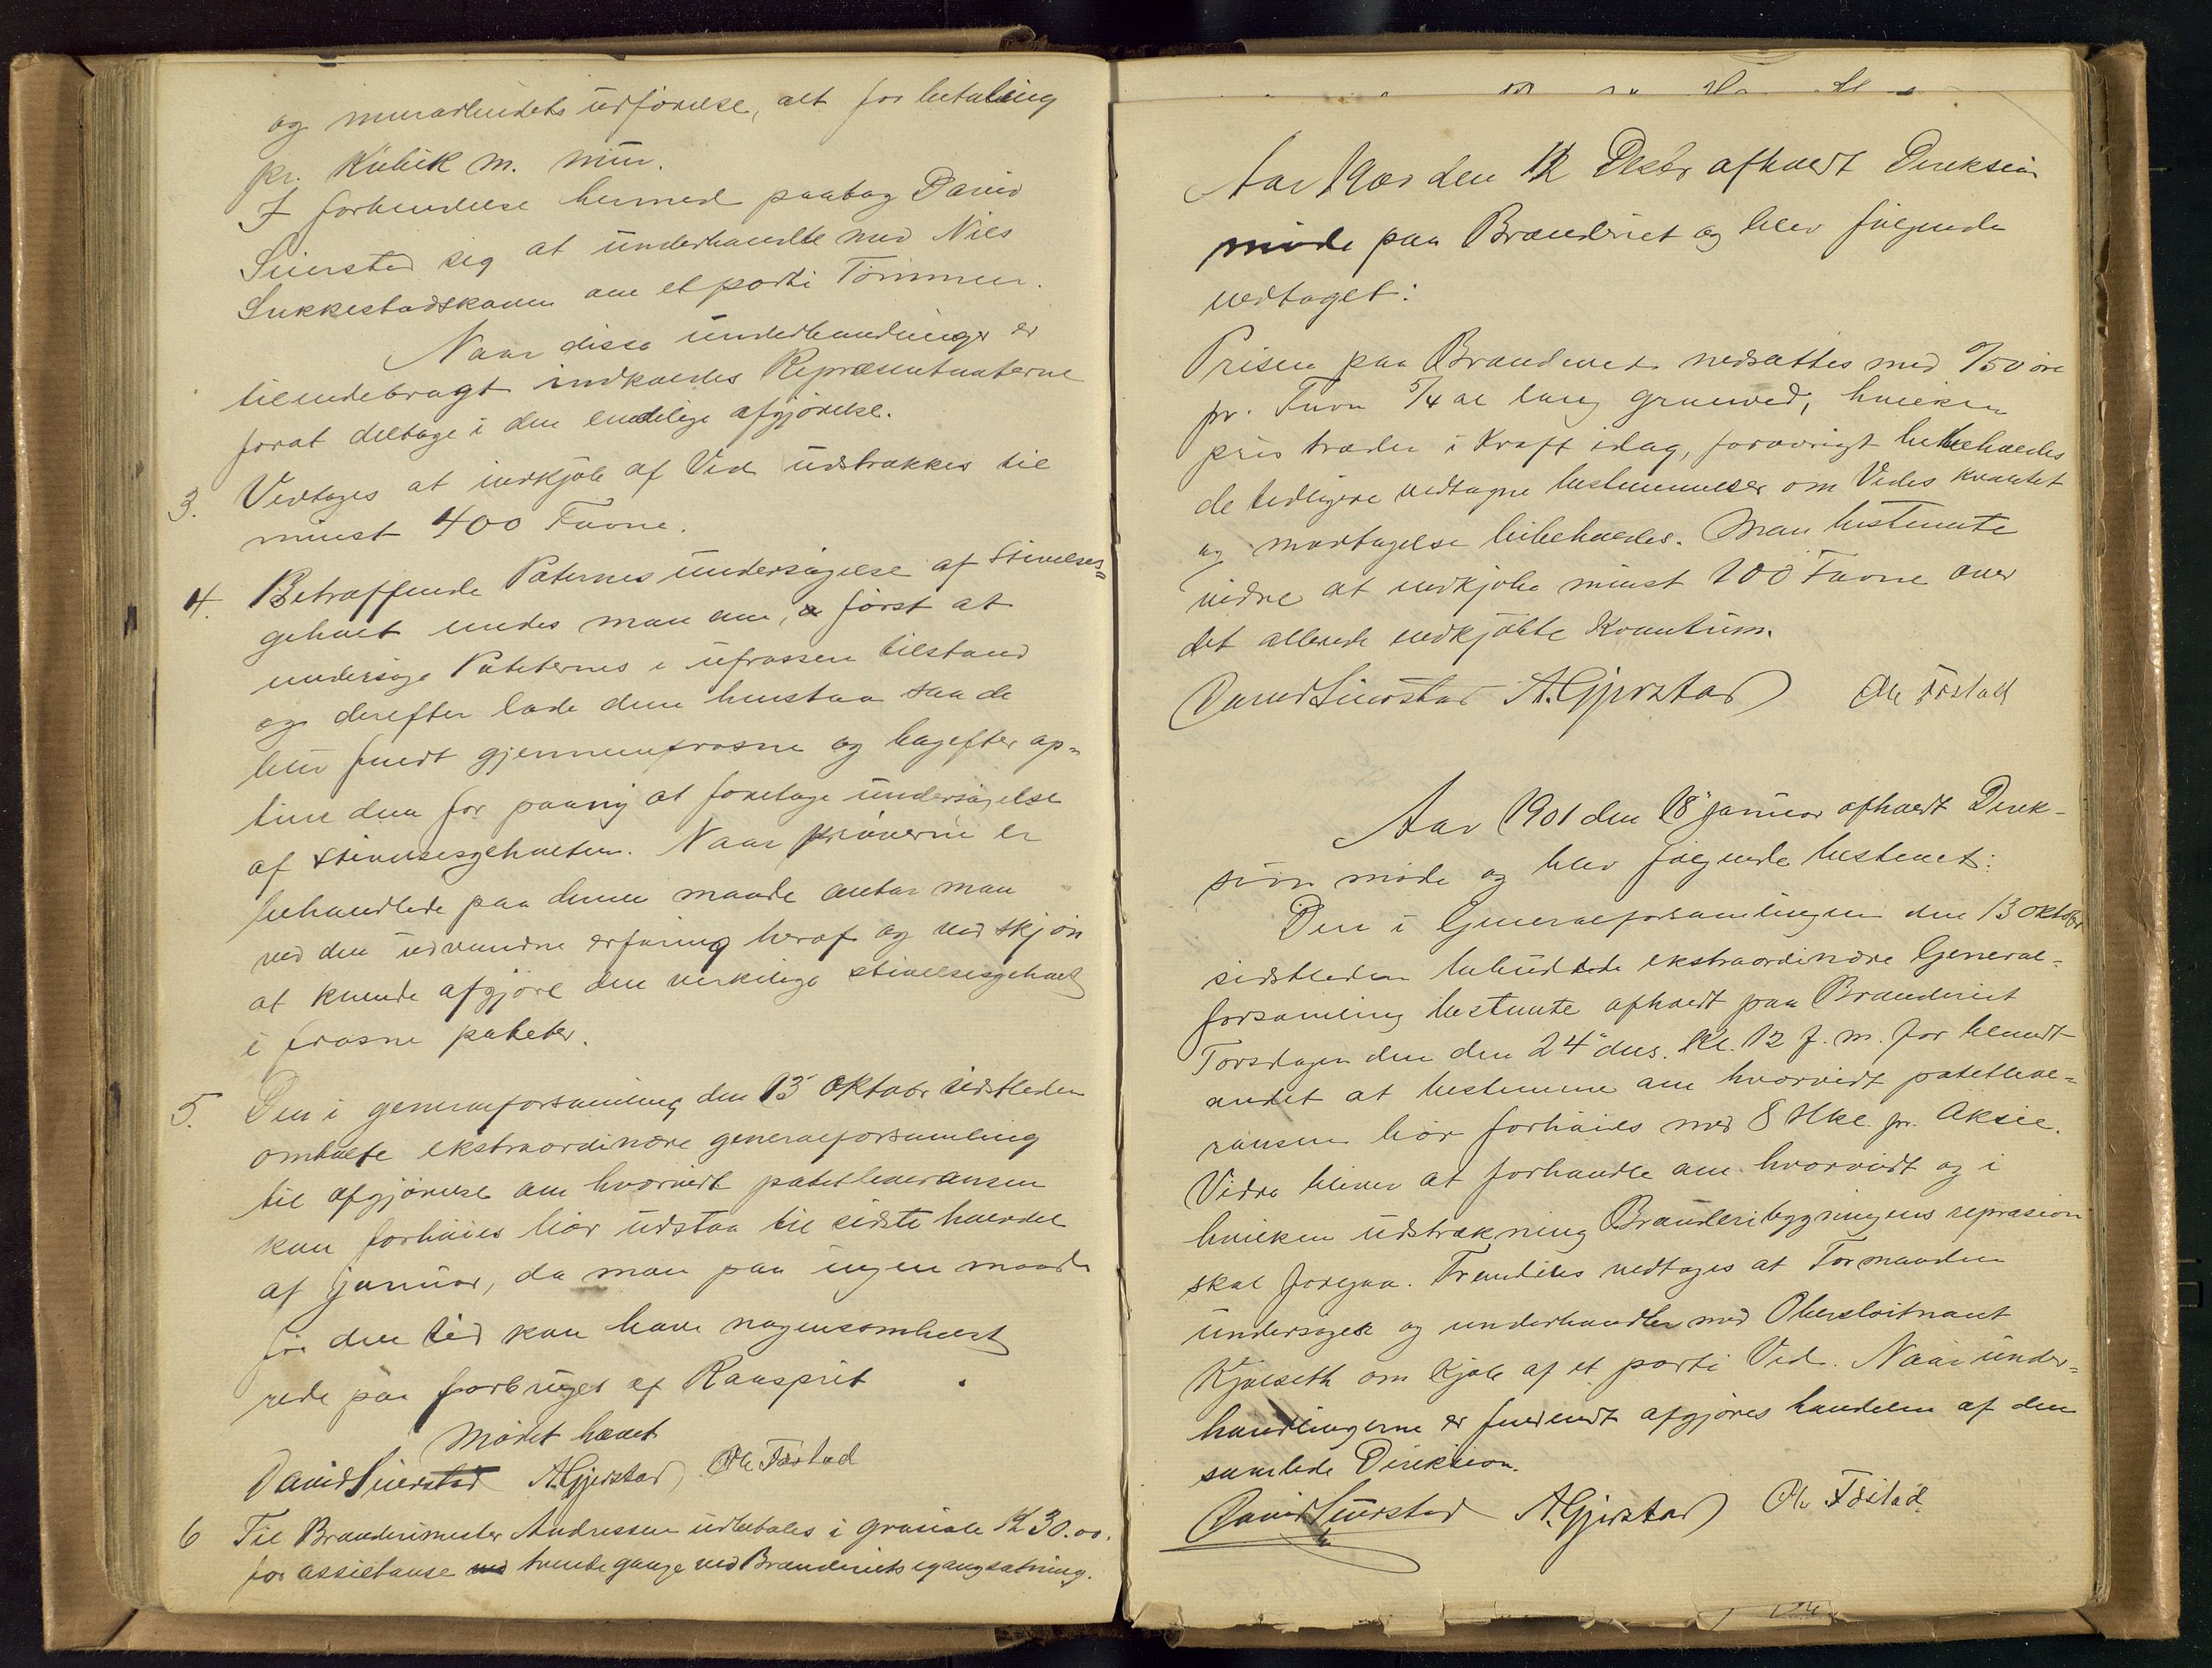 og murarbeidets udførelse, alt for betaling
pr. Kubik m. mur.
I forbindelse hermed paatog David
Sierstad sig at underhandle med Nils
Sukkestadskaven om et parti Tømmer.
Naar disse underhandlinger er
tilendebragt indkaldes Repræsentanterne
forat deltage i den endelige afgjørelse.
3. Vedtages at indkjøb af Ved udstrækkes til
minst 400 Favne.
4. Betræffende Poternes undersøgelse af Stivelses=
gehalt enedes man om, først at
undersøge Poteternes i ufrossen tilstand
og derefter lade dem henstaa saa de
blir fuldt gjennemfrosne og bagefter op=
tine dem for paany at foretage undersøgelse
af stivelsesgehalten. Naar prøverne er
behandlede paa denne maade antar man
ved den udvundne erfaring heraf og ved skjøn
at kunde afgjøre den virkelige stivelsesgehalt
i frosne poteter.
5. Den i generalforsamling den 13 oktobr sidstleden
omtalte ekstraordinære generalforsamling
til afgjørelse om hvorvidt potetleveransen
kan forhøies bør udstaa til sidste halvdel
af Januar, da man paa ingen maade
før den tid kan have nogensomhelst
rede paa forbruget af Raasprit
Mødet hævet
David Sierstad A. Gjerstad Ole Fæstad
6 Til Brænderimester Andressen udbetales i grasiale K 30.00.
for assistanse trende gange ved Brænderiets igangsætning.
Aar 1900 den 12 Desbr afholdt Direksion
møde paa Brænderiet og blev følgende
vedtaget:
Prisen paa Brændeved nedsættes med 0/50 øre
pr. Favn 5/4 al lang granved, hvilken
pris træder i Kraft idag, forøvrigt bibeholdes
de tidligere vedtagne bestemmelser om Vedes kvantet
og modtagelse bibeholdes. Man bestemte
vidre at indkjøbe minst 200 Favne over
det allerede indkjøbte Kvantum.
David Sierstad A. Gjerstad Ole Fæstad
Aar 1901 den 18 januar afholdt Direk-
sion møde og blev følgende bestemt:
Den i Generalforsamlingen den 13 oktober
sidstleden bebudede ekstraordinære General=
forsamling bestemte afholdt paa Brænderiet
Torsdagen den den 24" ds. Kl. 12 f.m. for blandt
andet at bestemme om hvorvidt potetleve=
ransen bør forhøies med 8 Hkl. pr. Aksie.
Vidre bliver at forhandle om hvorvidt og i
hvilken udstrækning Brænderibygningens reprasion
skal foregaa. Fremdeles vedtages at Formanden
undersøger og underhandler med Oberstløitnant
Kjølseth om kjøb af et parti Ved. Naar under=
handlingerne er fuldendt afgjøres handelen af den
samlede Direksion.
David Sierstad A. Gjerstad Ole Fæstad